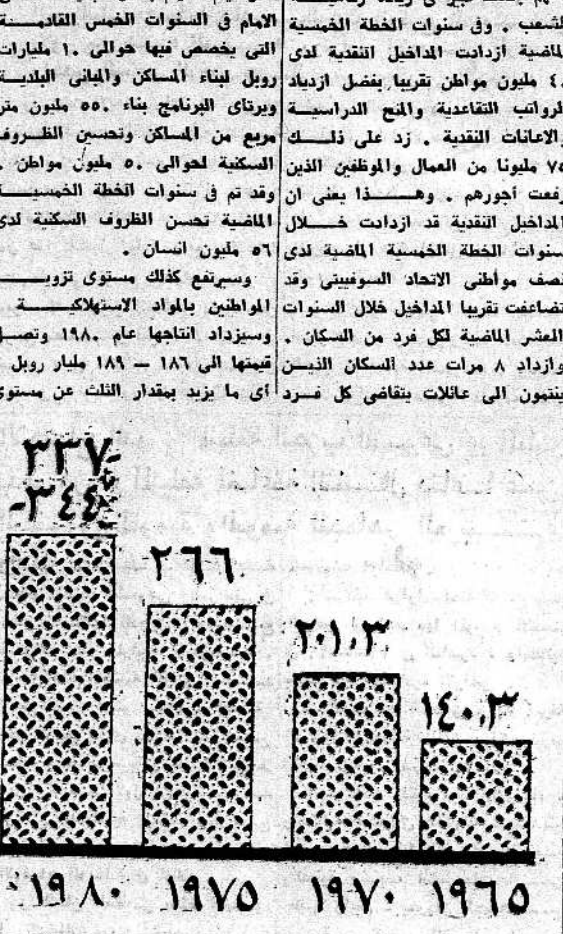 الشعب . وفى سنوات الخطة الخمسية
الماضية ازدادت المداخيل النقدية لدى
٤٠ مليون مواطن تقريبا بفضل ازدياد
الرواتب التقاعدية والمنح الدراسيـة
والاعانات النقدية . زد على ذلــــك
٧٥ مليونا من العمال والموظفين الذين
رفعت أجورهم . وهــــــذا يعنى ان
المداخيل النقدية قد ازدادت خــــلال
سنوات الخطة الخمسية الماضية لدى
نصف مواطنى الاتحاد السوفييتى وقد
تضاعفت تقريبا المداخيل خلال السنوات
العشر الماضية لكل فرد من السكان .
وازداد ٨ مرات عدد السكان الذيــن
ينتمون الى عائلات يتقاضى كل فــرد
الامام فى السنوات الخمس القادمـــة
التى يخصص فيها حوالى ١٠٠ مليارات
روبل لبناء المساكن والمبانى البلديــة
ويرتاى البرنامج بناء ٥٥٠ مليون متر
مربع من المساكن وتحسين الظــروف
السكنية لحوالى ٥٠ مليون مواطن .
وقد تم فى سنوات الخطة الخمسيـــة
الماضية تحسن الظروف السكنية لدى
٥٦ مليون انسان .
وسيرتفع كذلك مستوى تزويــــد
المواطنين بالمواد الاستهلاكيـــــة .
وسيزداد انتاجها عام ١٩٨٠ وتصــل
قيمتها الى ١٨٦ — ١٨٩ مليار روبل
أى ما يزيد بمقدار الثلث عن مستوى
٣٣٧-
٣٤٤
٢٦٦
٢٠١،٣
١٤٠،٣
١٩٨٠ ١٩٧٥ ١٩٧٠ ١٩٦٥